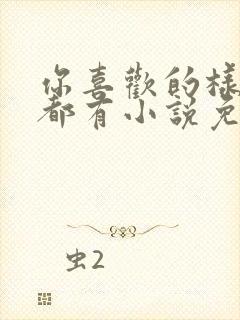 你喜歡的樣
都有小説免
虫2